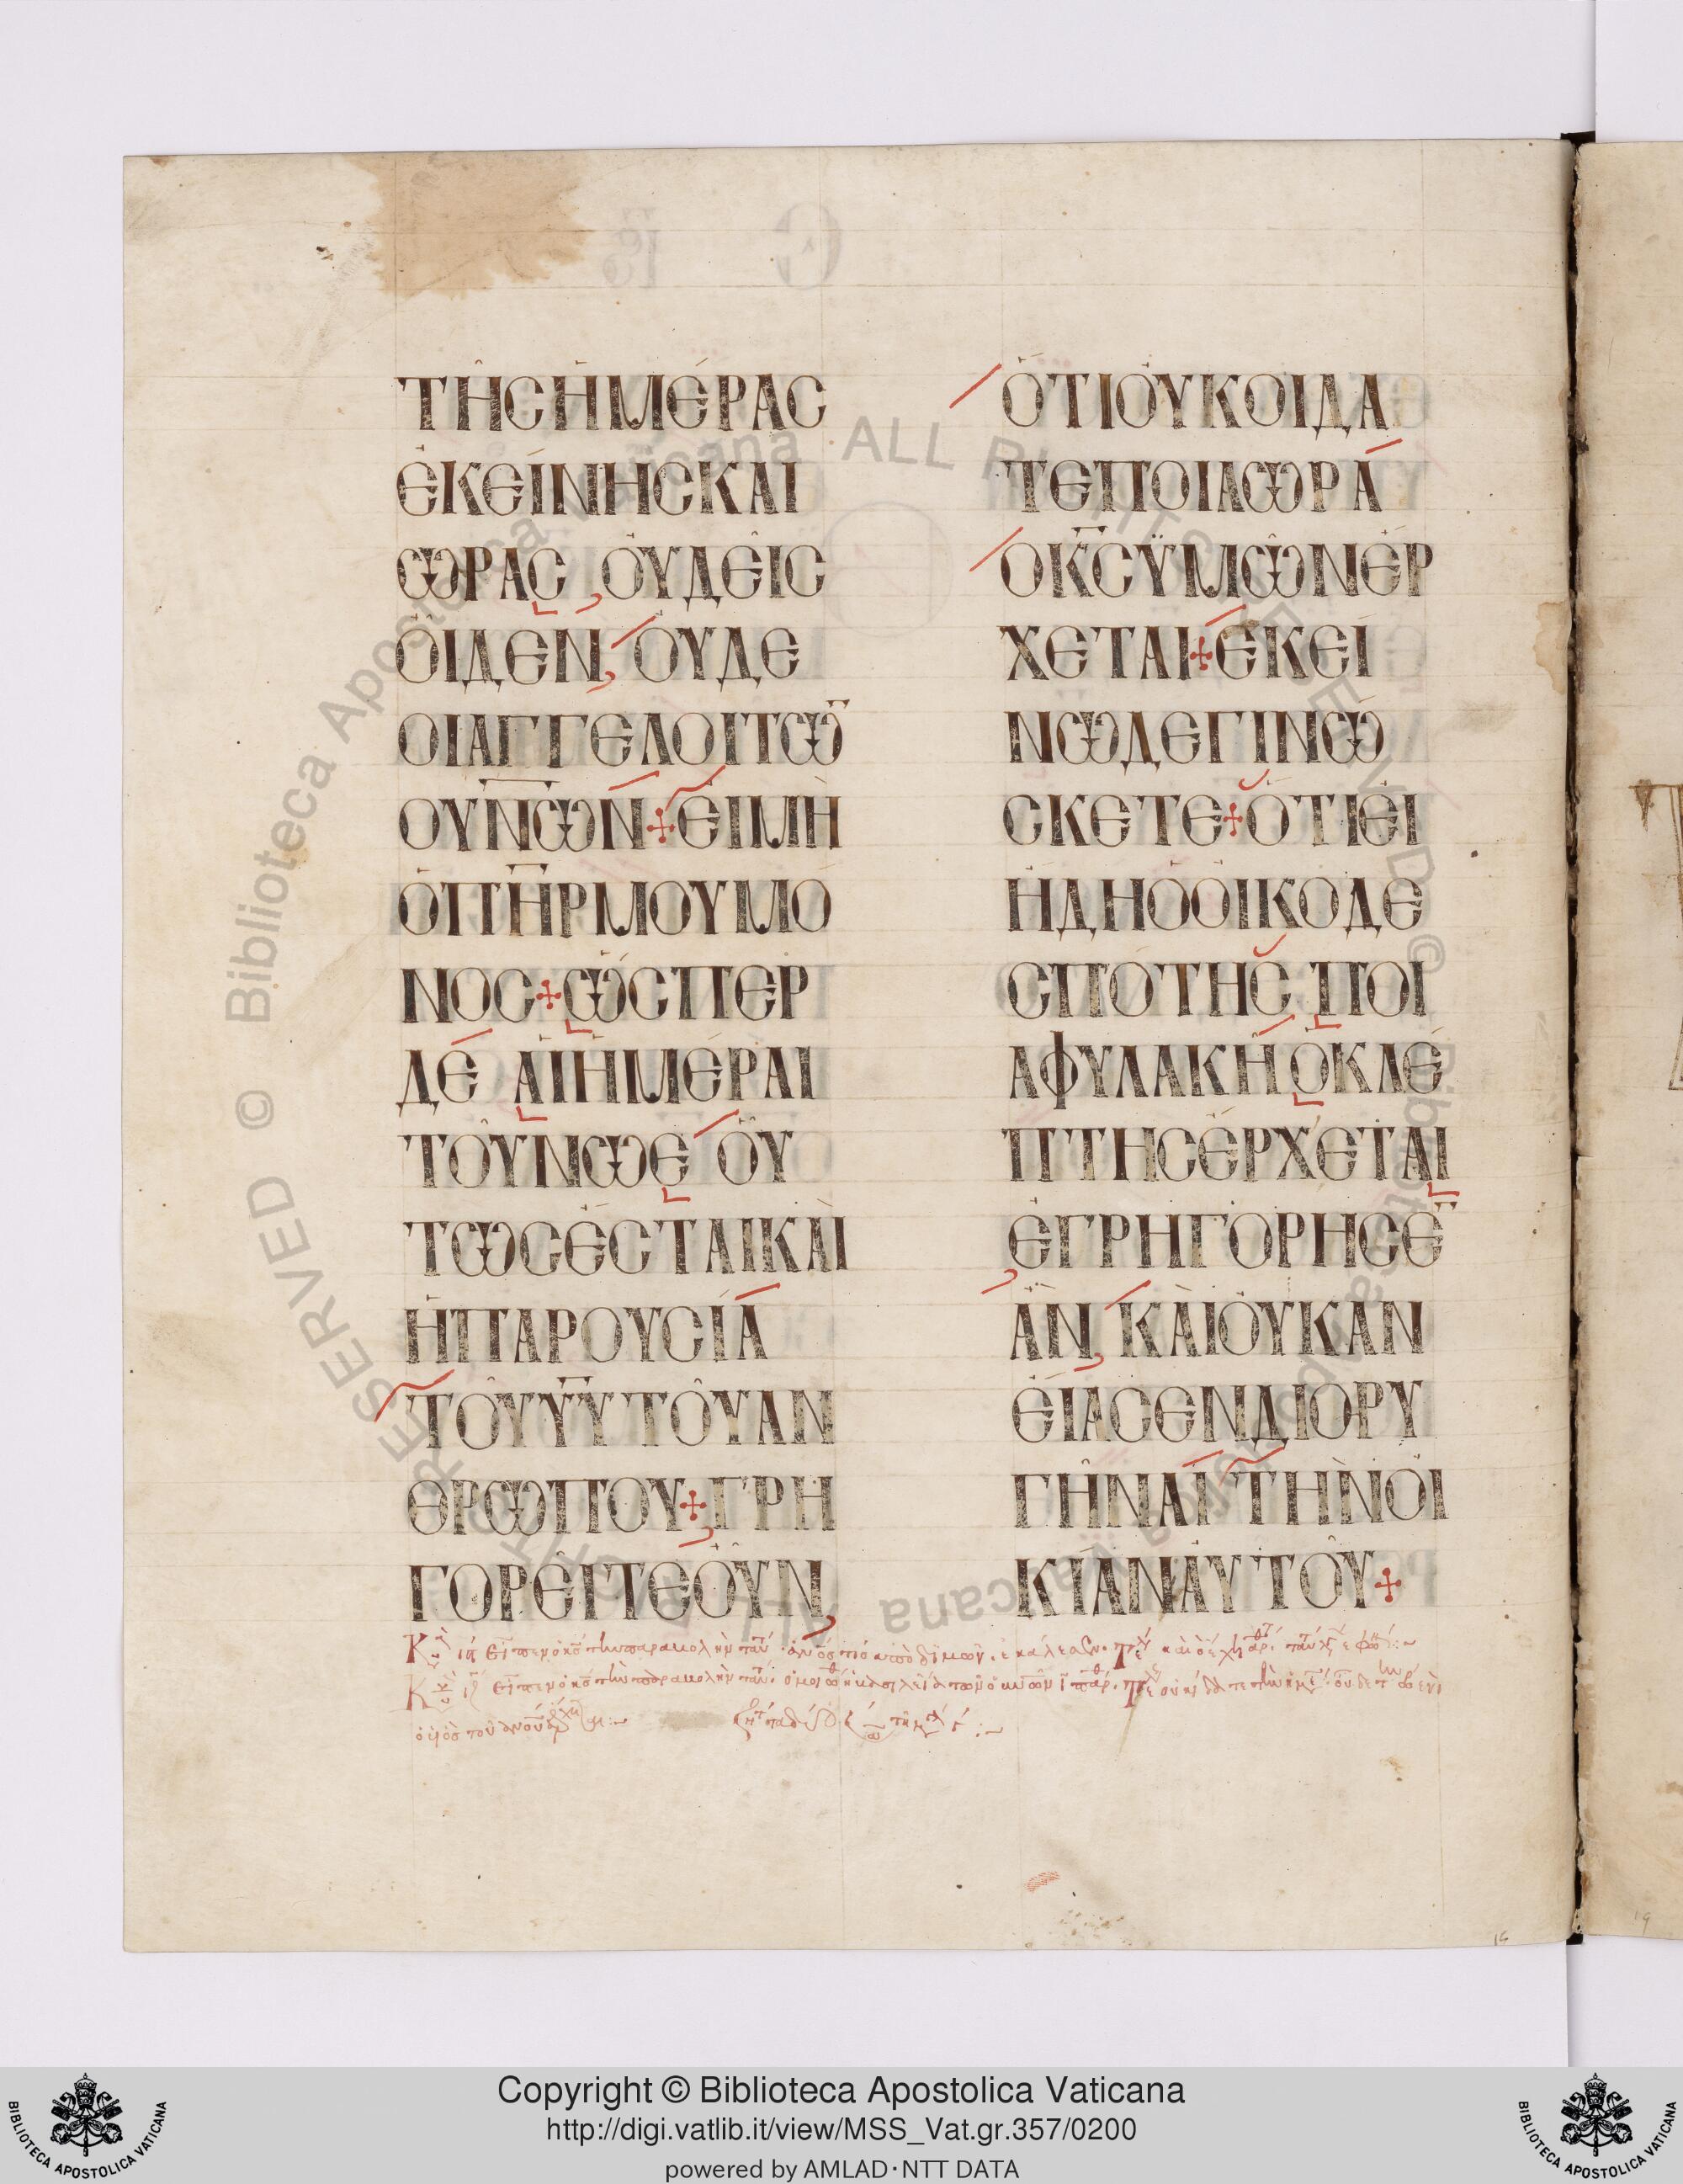 ΤΗ͂ϹἩΜΈΡΑϹ
ἘΚΕΊΝΗϹΚΑΙ
ὩΡΑϹ, ΟΥ̓ΔΕῚϹ
ΟἾΔΕΝ, ΟΥ̓ΔΕ
ΟΙΑΓΓΕΛΟΙΤΩ͂
ΟΥΝ̅Ω̅Ν+ΕἸΜῊ
ὉΠΗ̅ΡΜΟΥΜΌ
ΝΟϹ+ὭϹΠΕΡ
ΔΈ ΑἹἩΜΈΡΑΙ
ΤΟΥ͂ΝΩΕ ΟὝ
ΤΩϹἜϹΤΑΙΚΑῚ
ἩΠΑΡΟΥϹΊΑ
ΤΟΥ͂ΥΥ̅ΤΟΥ͂ΑΝ
ΘΡΩΠΟΥ+ΓΡΗ
ΓΟΡΕΙ͂ΤΕΟΥ̓͂Ν,
ὍΤΙΟΥ̓ΚΟΙΔΑ
ΤΕΠΟΙΑΩΡΑ
ΟΚ̅Ϲ̅ΫΜΩ͂ΝἘΡ
ΧΕΤΑΙ+ἘΚΕΙ
ΝΩΔΕΓΙΝΩ
ϹΚΕΤΕ+ὍΤΙΕΙ
ἨΔΗΟΟΙΚΟΔΕ
ϹΠΌΤΗϹ ΠΟΙ
ΑΦΥΛΑΚΗ͂ΟΚΛΕ
ΠΤΗϹἘΡΧΕΤΑΙ
ἘΓΡΗΓΌΡΗϹΕ
ἊΝ, ΚΑῚΟΥ̓ΚΑΝ
ΕΙΑϹΕΝΔΙΟΡΥ
ΓΗ͂ΝΑΙ ΤΗῚΝΟΙ
ΚΊΑΝΑΥ̓ΤΟΥ͂+
16
19
© Biblioteca Apostolica Vaticana · ALL RIGHTS RESERVED
Copyright © Biblioteca Apostolica Vaticana
http://digi.vatlib.it/view/MSS_Vat.gr.357/0200
powered by AMLAD·NTT DATA
BIBLIOTECA APOSTOLICA VATICANA
BIBLIOTECA APOSTOLICA VATICANA